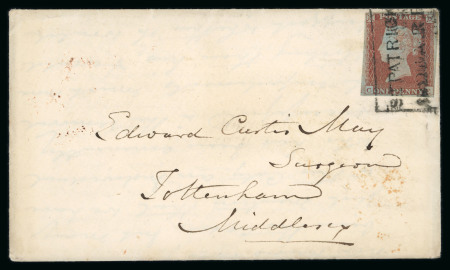 POSTAGE
ST PATRICK
ONE PENNY
Edward Curtis May
Surgeon
Tottenham
Middlesex